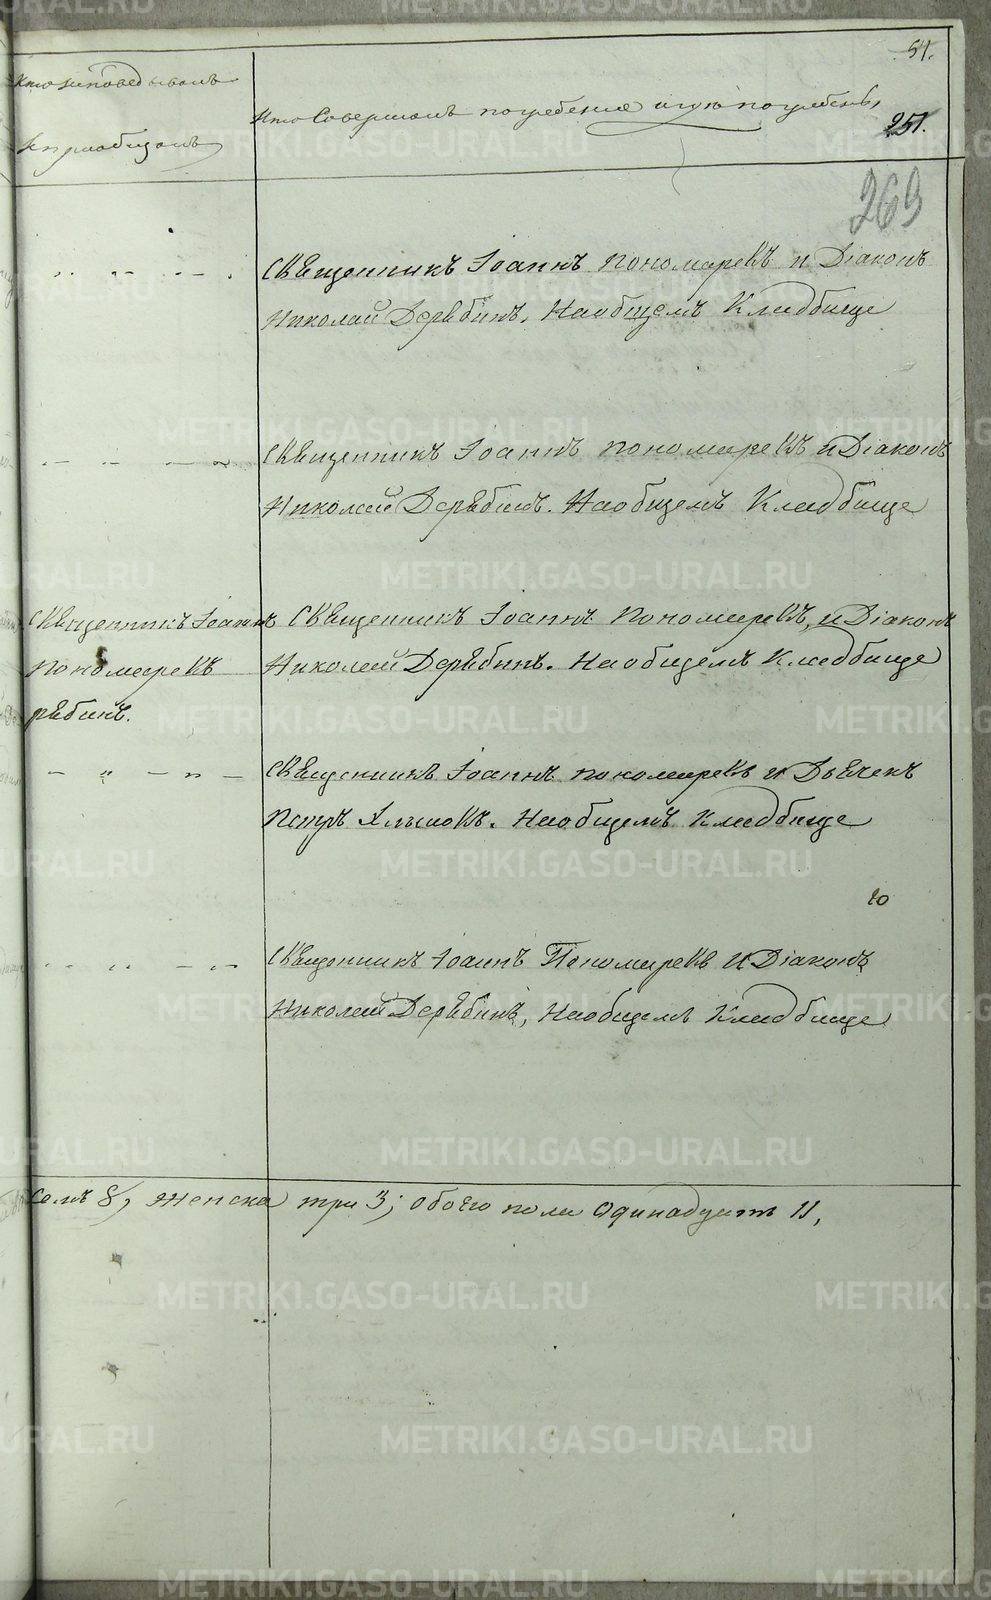 54.
Кто исповедывалъ
и приобщалъ
Кто Совершалъ погребение и где погребенъ,
251.
269
Священникъ Іоаннъ Пономаревъ и Діаконъ
Николай Дерябинъ. На общемъ Кладбище
Священникъ Іоаннъ Пономаревъ и Діаконъ
Николай Дерябинъ. На общемъ Кладбище
Священникъ Іоаннъ
Пономаревъ
рябинъ.
Священникъ Іоаннъ Пономаревъ, и Діаконъ
Николай Дерябинъ. На общемъ Кладбище
Священникъ Іоаннъ Пономаревъ и Дьячекъ
Петръ Хлыновъ. На общемъ Кладбище
10
Священникъ Іоаннъ Пономаревъ и Діаконъ
Николай Дерябинъ, На общемъ Кладбище
8, Женска три 3; обоего пола Одинадцать 11,
METRIKI.GASO-URAL.RU